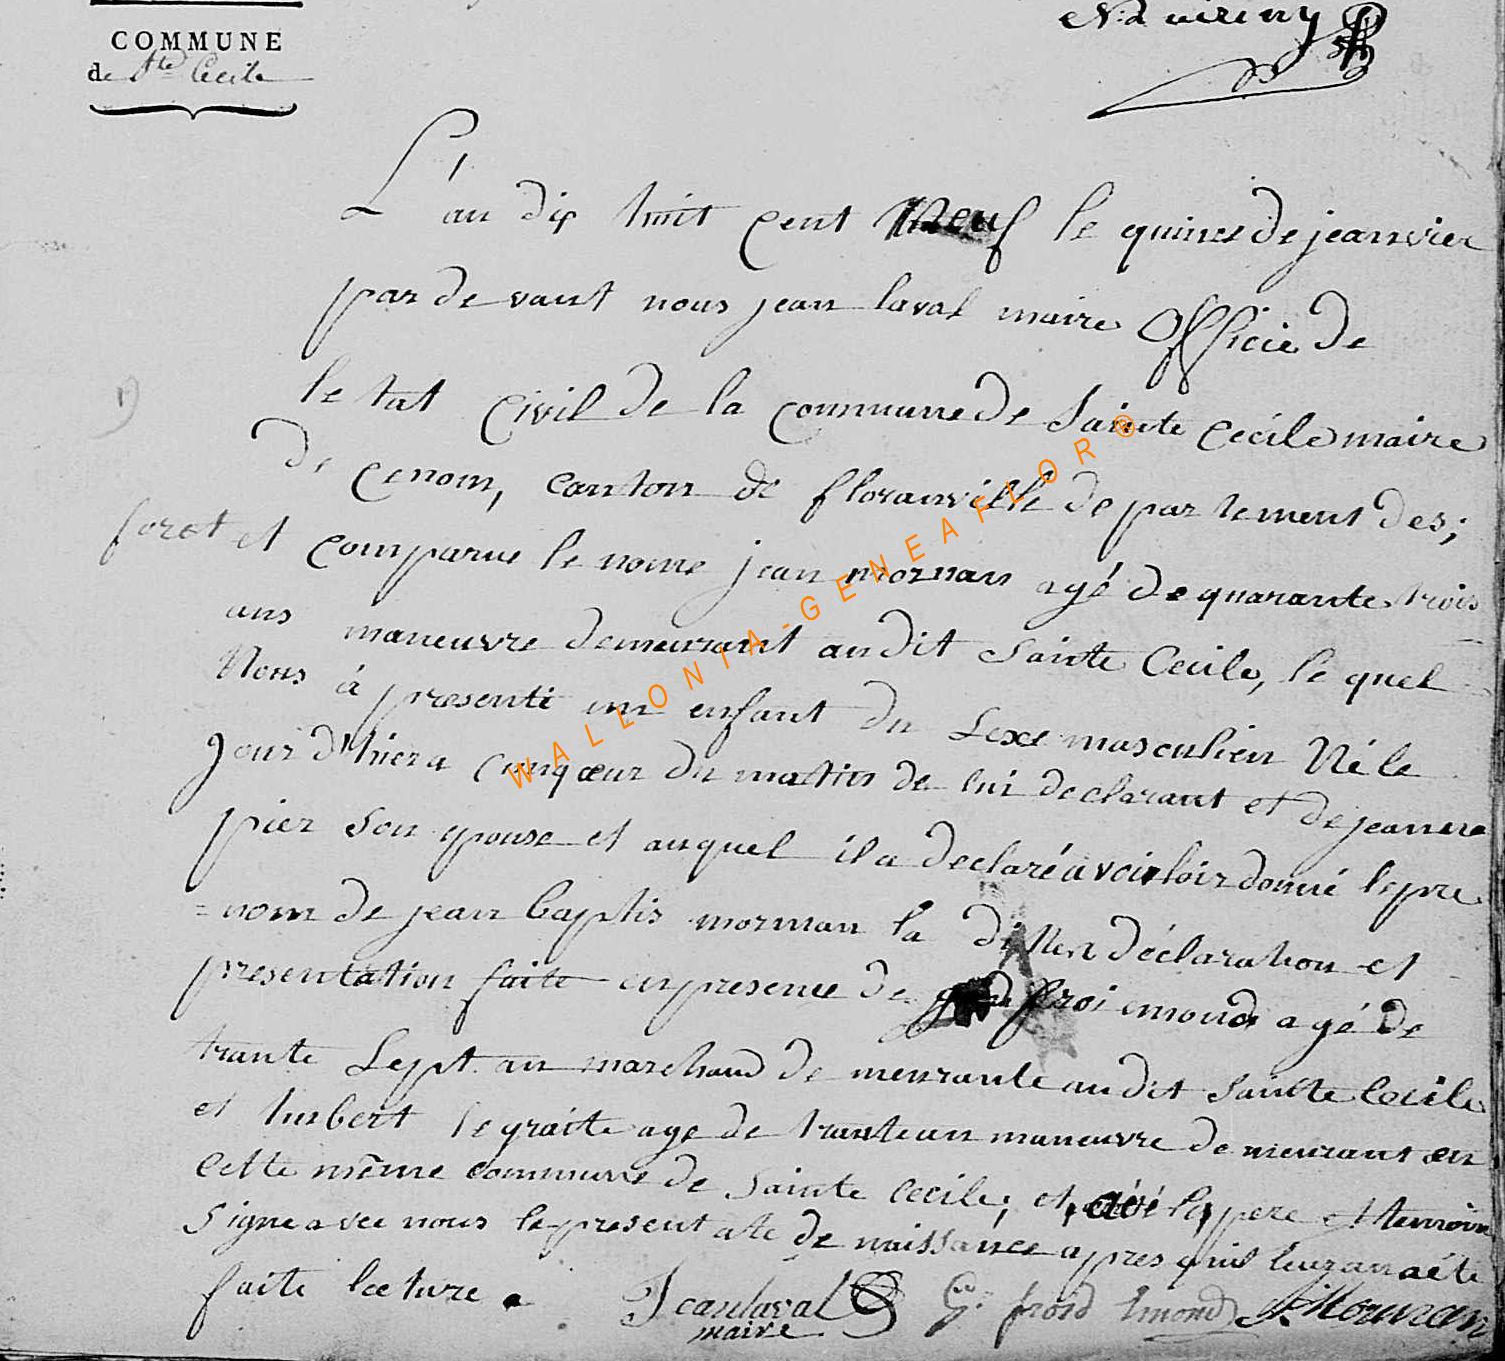 N: d quiriny
COMMUNE
de Ste Cecile
L'an dix huit cent neuf le quince de jeanvier
par de vant nous jean laval maire Officié de
le tat Civil de la commune de Sainte Cécile maire
de cenom, canton de floranville de par tement des;
foret et comparue le nome jean mornan agé de quarante trois
ans maneuvre demeurant audit Sainte Cecile, le quel
Nous à presenté un enfant du Sexe masculien Né le
Jour d'hier a cinq œur du matin de lui declarant et de jeanne
pier son epouse et auquel il a declaré avoir loir donné le pre
=nom de jean baptis mornan la ditte déclaration et
presentation faite en presence de froi emond agé de
trante Sept an marchand de meurante audit Sainte Cecile
et hubert le graite age de trante un maneuvre de meurant en
cette même commune de Sainte Cecile; et le pere et temoin
Signe avec nous le present ate de naissance apres quil leuz an a été
faite lecture.
Jean laval G: froid Emond J. Mornan
maire
WALLONIA-GENEAFLOR ®